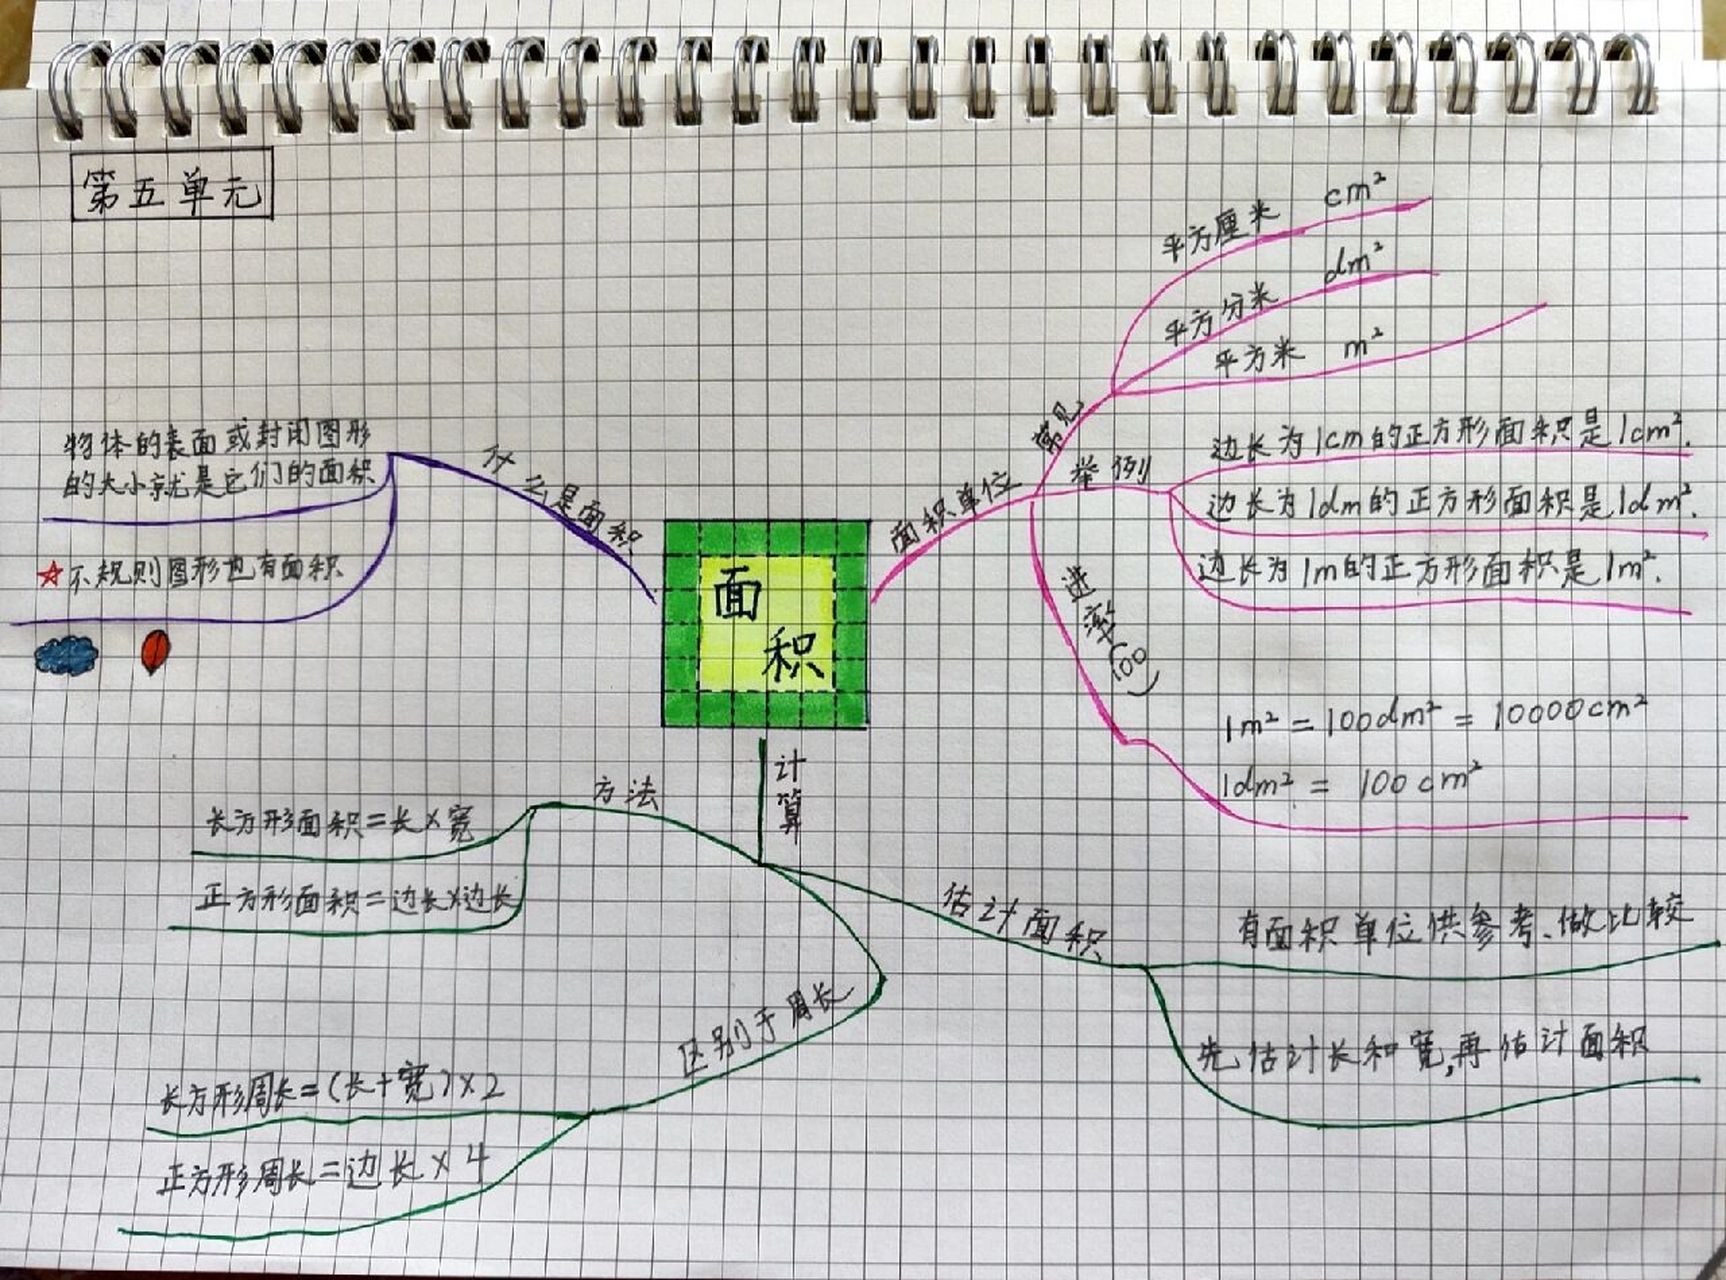 第五单元
面
积
什么是面积
物体的表面或封闭图形
的大小就是它们的面积
☆不规则图形也有面积
面积单位
常见
平方厘米 cm²
平方分米 dm²
平方米 m²
举例
边长为1cm的正方形面积是1cm².
边长为1dm的正方形面积是1dm².
边长为1m的正方形面积是1m².
进率(100)
1m² = 100dm² = 10000cm²
1dm² = 100cm²
计算
方法
长方形面积=长×宽
正方形面积=边长×边长
估计面积
有面积单位供参考、做比较
先估计长和宽,再估计面积
区别于周长
长方形周长=(长+宽)×2
正方形周长=边长×4